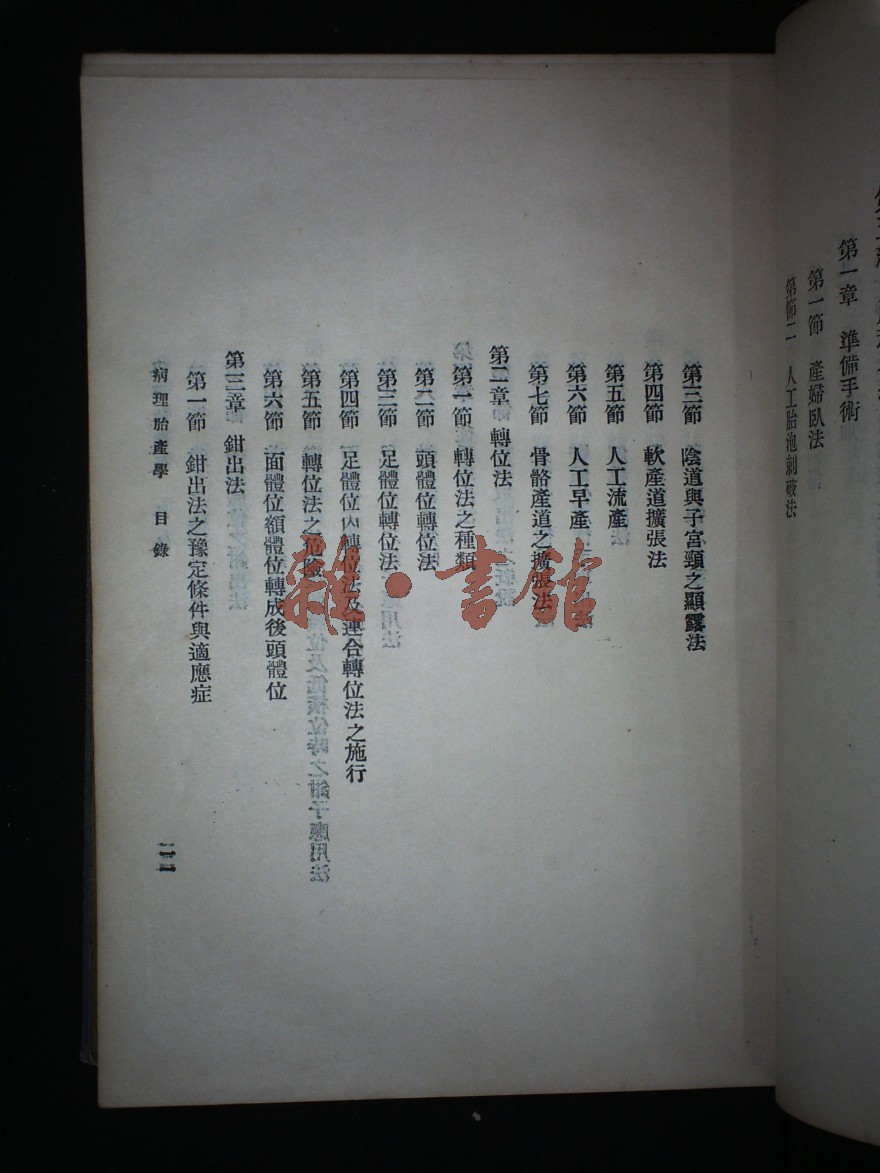 第一章　準備手術
第一節　產婦臥法
第節二　人工胎泡刺破法
第三節　陰道與子宮頸之顯露法
第四節　軟產道擴張法
第五節　人工流產法
第六節　人工早產
第七節　骨骼產道之擴張法
第二章　轉位法
第一節　轉位法之種類
第二節　頭體位轉位法
第三節　足體位轉位法
第四節　足體位內轉位法及連合轉位法之施行
第五節　轉位法之危險
第六節　面體位額體位轉成後頭體位
第三章　鉗出法
第一節　鉗出法之豫定條件與適應症
病理胎產學　目錄
雜·書館